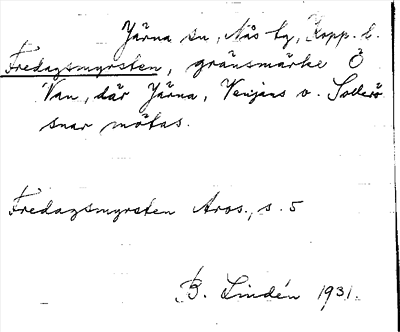 Järna sn, Nås tg, Kopp. l.
Fredagsmyrsten, gränsmärke Ö
Van, där Järna, Venjans o. Sollerö
snar mötas.
Fredagsmyrsten Aros., s. 5
B. Lindén 1931.